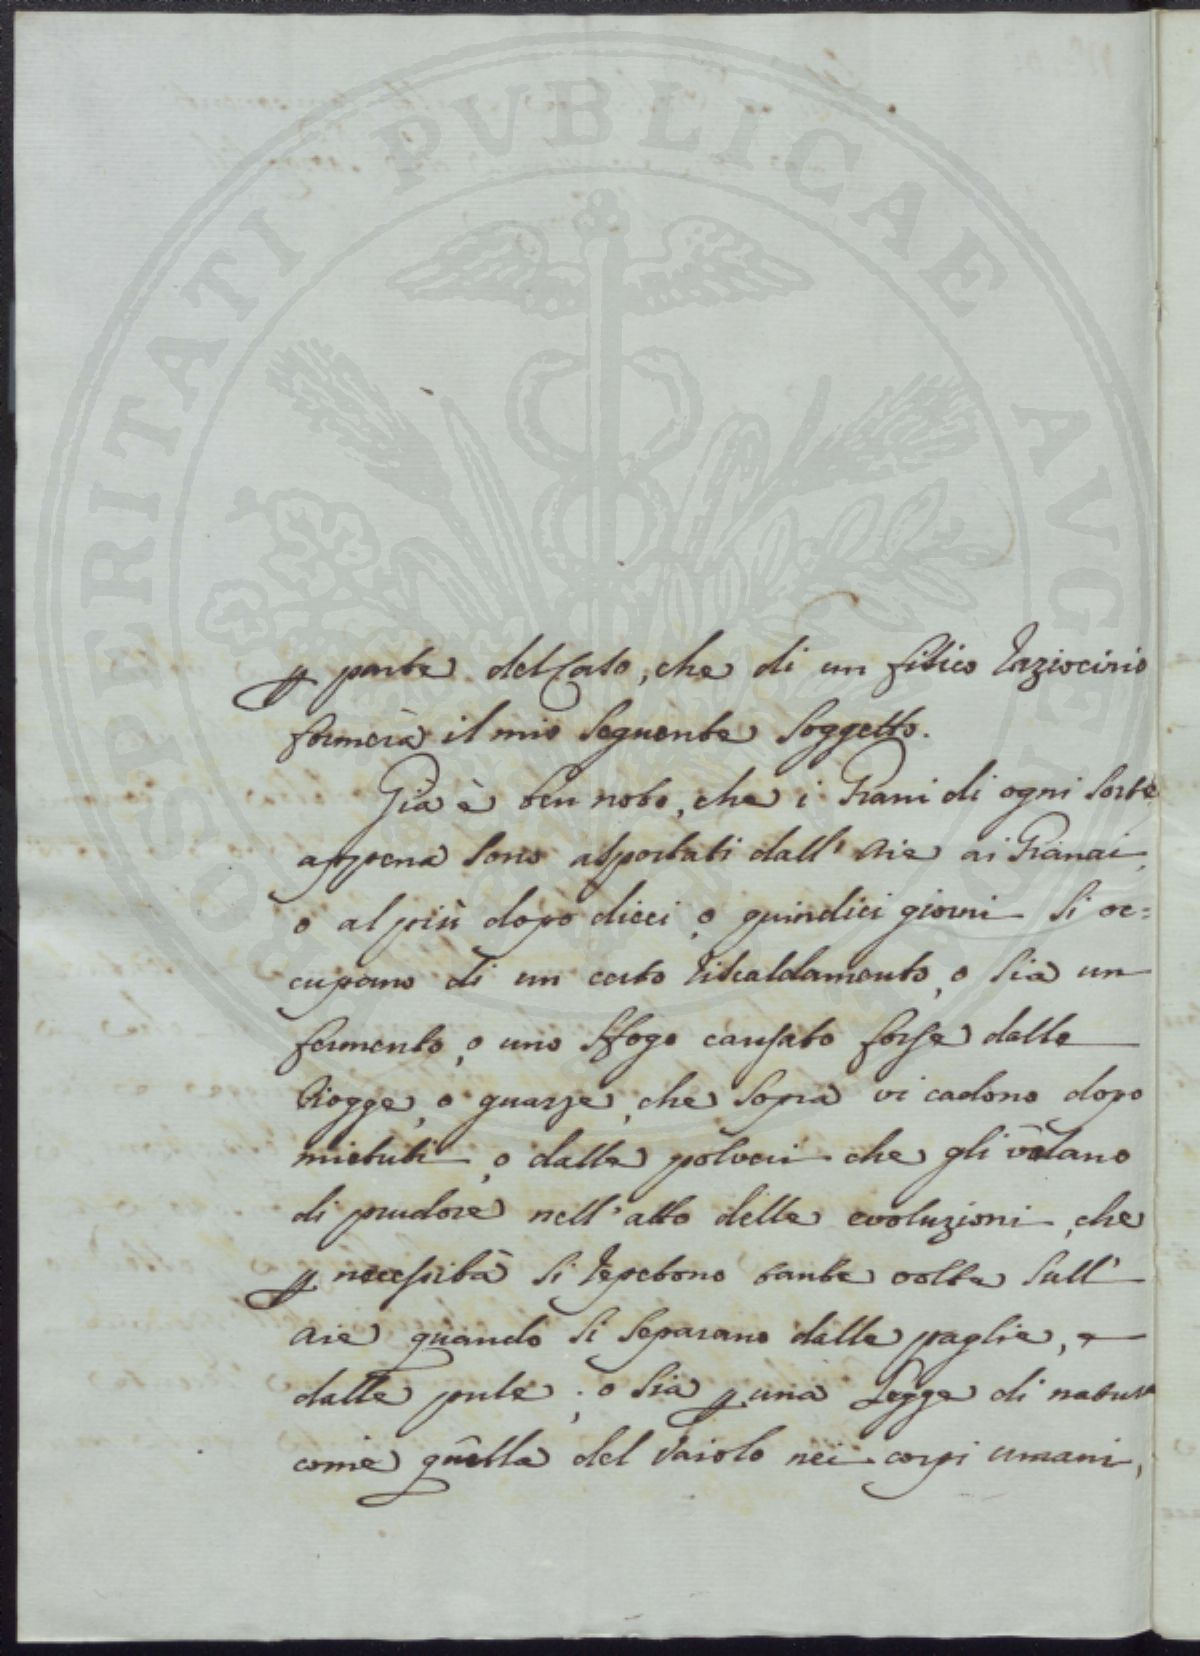 PROSPERITATI PUBLICAE AUGENDAE
p parte del Caso, che di un fisico raziocinio
formerà il mio seguente soggetto.
Già è ben noto, che i Grani di ogni sorte
appena sono asportati dall' Aie ai Granai,
o al più dopo dieci, o quindici giorni si oc=
cupano di un certo riscaldamento, o sia un
fermento, o uno sfogo causato forse dalle
Piogge, o guazze, che sopra vi cadono dopo
mietuti, o dalle polveri che gli volano
di nell'atto delle evoluzioni, che
p necessità si repetono tante volte sull'
Aie quando si separano dalle paglie, e
dalle pule; o sia p una Legge di natura
come quella del Vaiolo nei corpi umani,